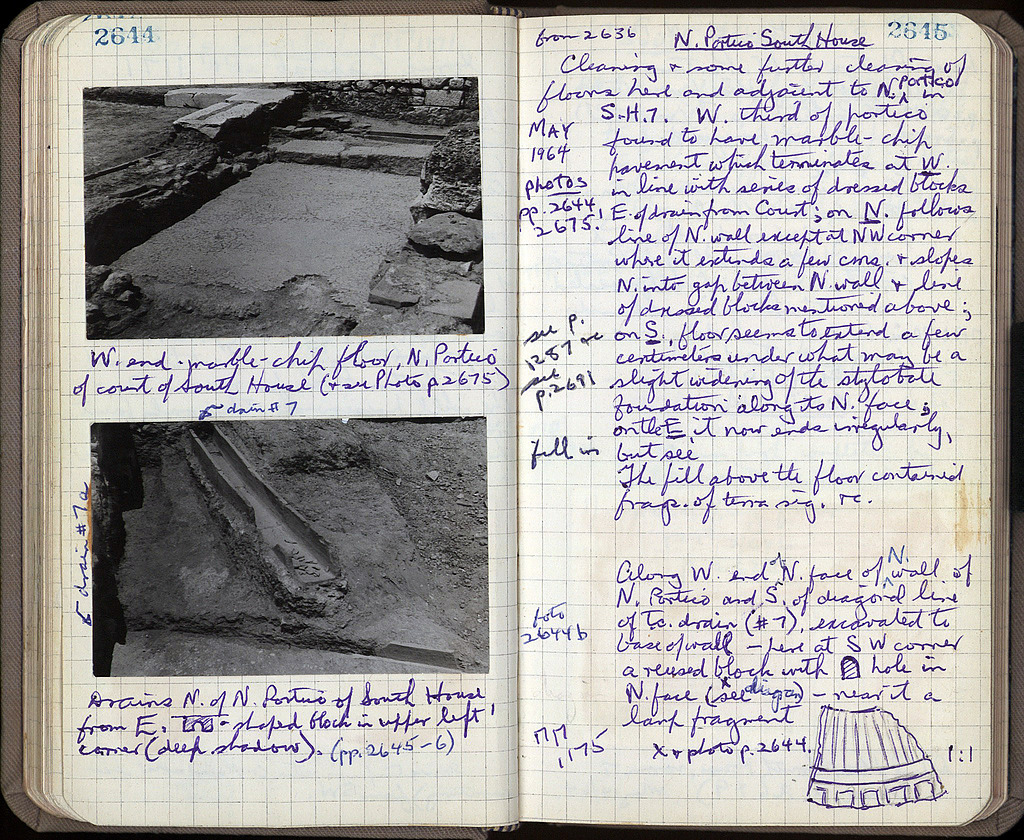 2644
W. end - marble-chip floor, N. Portico
of court of South House (+ see Photo p. 2675)
drain #7
drain #7a
Drains N. of N. Portico of South House
from E. -shaped block in upper left
corner (deep shadow). (pp. 2645-6)
from 2636
N. Portico South House
2645
Cleaning + some further clearing of
floors here and adjacent to N. portico in
S.H.7. W. third of portico
MAY
1964
found to have marble-chip
pavement which terminates at W.
photos
pp. 2644,
2675.
in line with series of dressed blocks
E. of drain from Court; on N. follows
line of N. wall except at NW corner
where it extends a few cms. + slopes
N. into gap between N. wall + line
of dressed blocks mentioned above;
see p.
1287 +c
see
p. 2691
on S., floor seems to extend a few
centimeters under what may be a
slight widening of the stylobate
foundation along its N. face;
on the E, it now ends irregularly,
fill in
but see
The fill above the floor contained
frags. of terra sig. +c.
Along W. end of N. face of N. wall of
N. Portico and S. of diagonal line
foto
2644b
of t.c. drain (#7), excavated to
base of wall - here at SW corner
a reused block with hole in
N. face (see diagr) - near it a
lamp fragment
x + photo p. 2644.
1:1